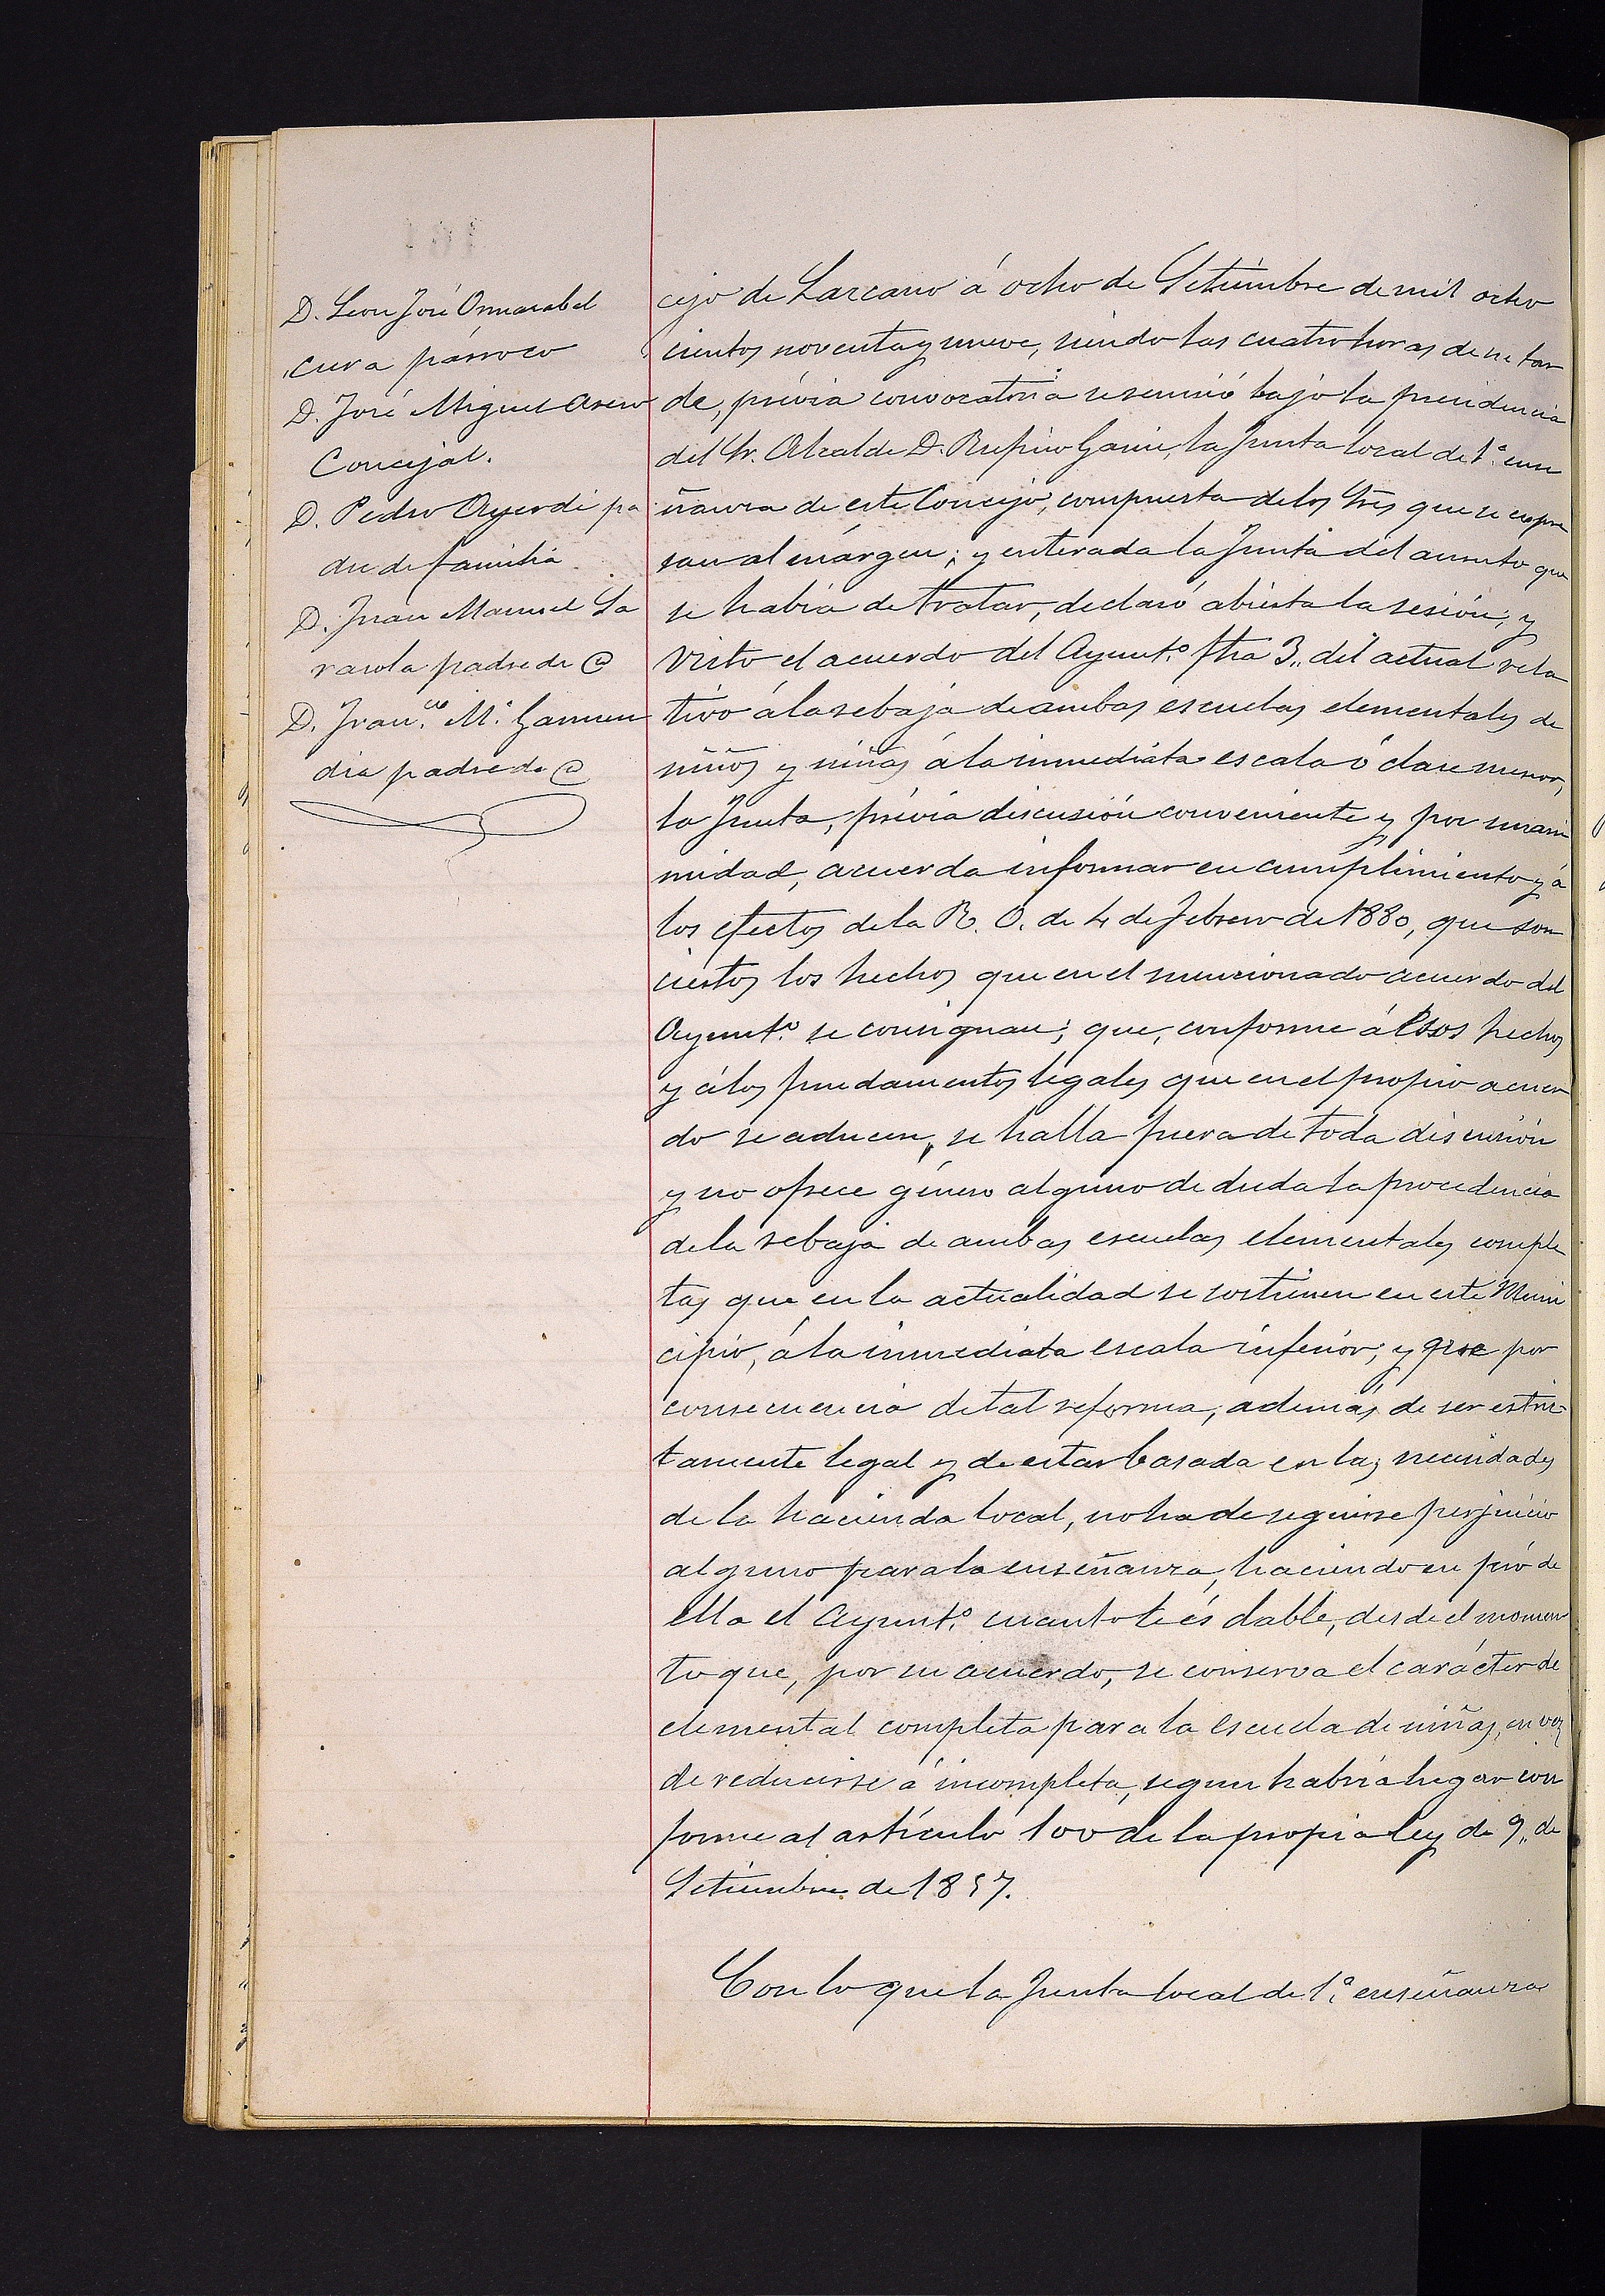 D. Leon José Ormazabal
cura párroco
D. José Miguel Asero
Concejal.
D. Pedro Ayerdi pa
dre de familia
D. Juan Manuel La
rasola padre de @
D. Fran.co M.ª Garmen
dia padre de @
cejo de Lazcano á ocho de Setiembre de mil ocho
cientos noventa y nueve, siendo las cuatro horas de su tar
de, prévia convocatoria se reunió bajo la presidencia
del Sr. Alcalde D. Rufino la Junta local de 1.ª ense
ñanza de este Concejo, compuesta de los Sres que se expre
san al márgen; y enterada la Junta del asunto que
se habia de tratar, declaró abierta la sesión; y
visto el acuerdo del Ayunt.º fha 3,, del actual rela
tivo á la rebaja de ambas escuelas elementales de
niños y niñas á la inmediata escala ó clase menor,
la Junta, prévia discusión conveniente y por unani
midad, acuerda informar en cumplimiento y á
los efectos de la R. O. de 4 de Febrero de 1880, que son
ciertos los hechos que en el mencionado acuerdo del
Ayunt.º se consignan; que, conforme á esos hechos
y á los fundamentos legales que en el propio acuer
do se aducen, se halla fuera de toda discusión
y no ofrece género alguno de duda la procedencia
de la rebaja de ambas escuelas elementales comple
tas que en la actualidad se sostienen en este Muni
cipio, á la inmediata escala inferior; y que por
consecuencia de tal reforma, además de ser estric
tamente legal y de estar basada en las necesidades
de la hacienda local, no ha de seguirse perjuicio
alguno para la enseñanza, haciendo en pró de
ella el Ayunt.º cuanto le és dable, desde el momen
to que, por su acuerdo, se conserva el carácter de
elemental completa para la escuela de niñas, en vez
de reducirse á incompleta, segun habria lugar con
forme al artículo 100 de la propia ley de 9,, de
Setiembre de 1857.
Con lo que la Junta local de 1.ª enseñanza